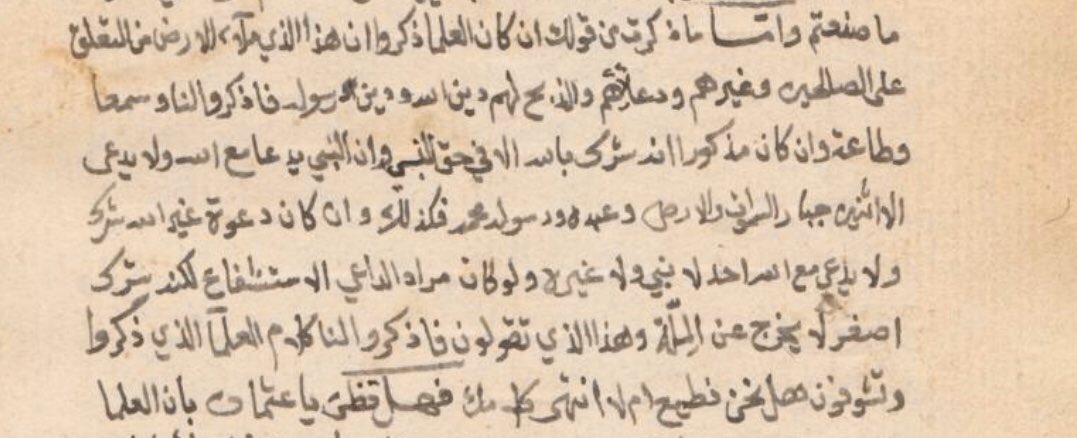 ما صنعتم واما ما ذكرت من قولك ان كان العلما ذكروا ان هذا الذي ملأ الارض من التعلق
على الصالحين وغيرهم ودعائهم والذبح لهم دين الله ودين رسوله فاذكروا لنا وسمعا
وطاعة وان كان مذكورا انه شرك بالله الا في حق النبي وان النبي يدعا مع الله ولا يدعى
الا اثنين جبار السموات والارض وعبده ورسوله محمد فكذلك وان كان دعوة غير الله شرك
ولا يدعي مع الله احد لا نبي ولا غيره ولو كان مراد الداعي الاستشفاع لكنه شرك
اصغر لا يخرج عن الملة وهذا الذي تقولون فاذكروا لنا كلام العلما الذي ذكروا
وتشوفون هل نحن نطيع ام لا انتهى كلامك فهل تظن يا عثمان بان العلما